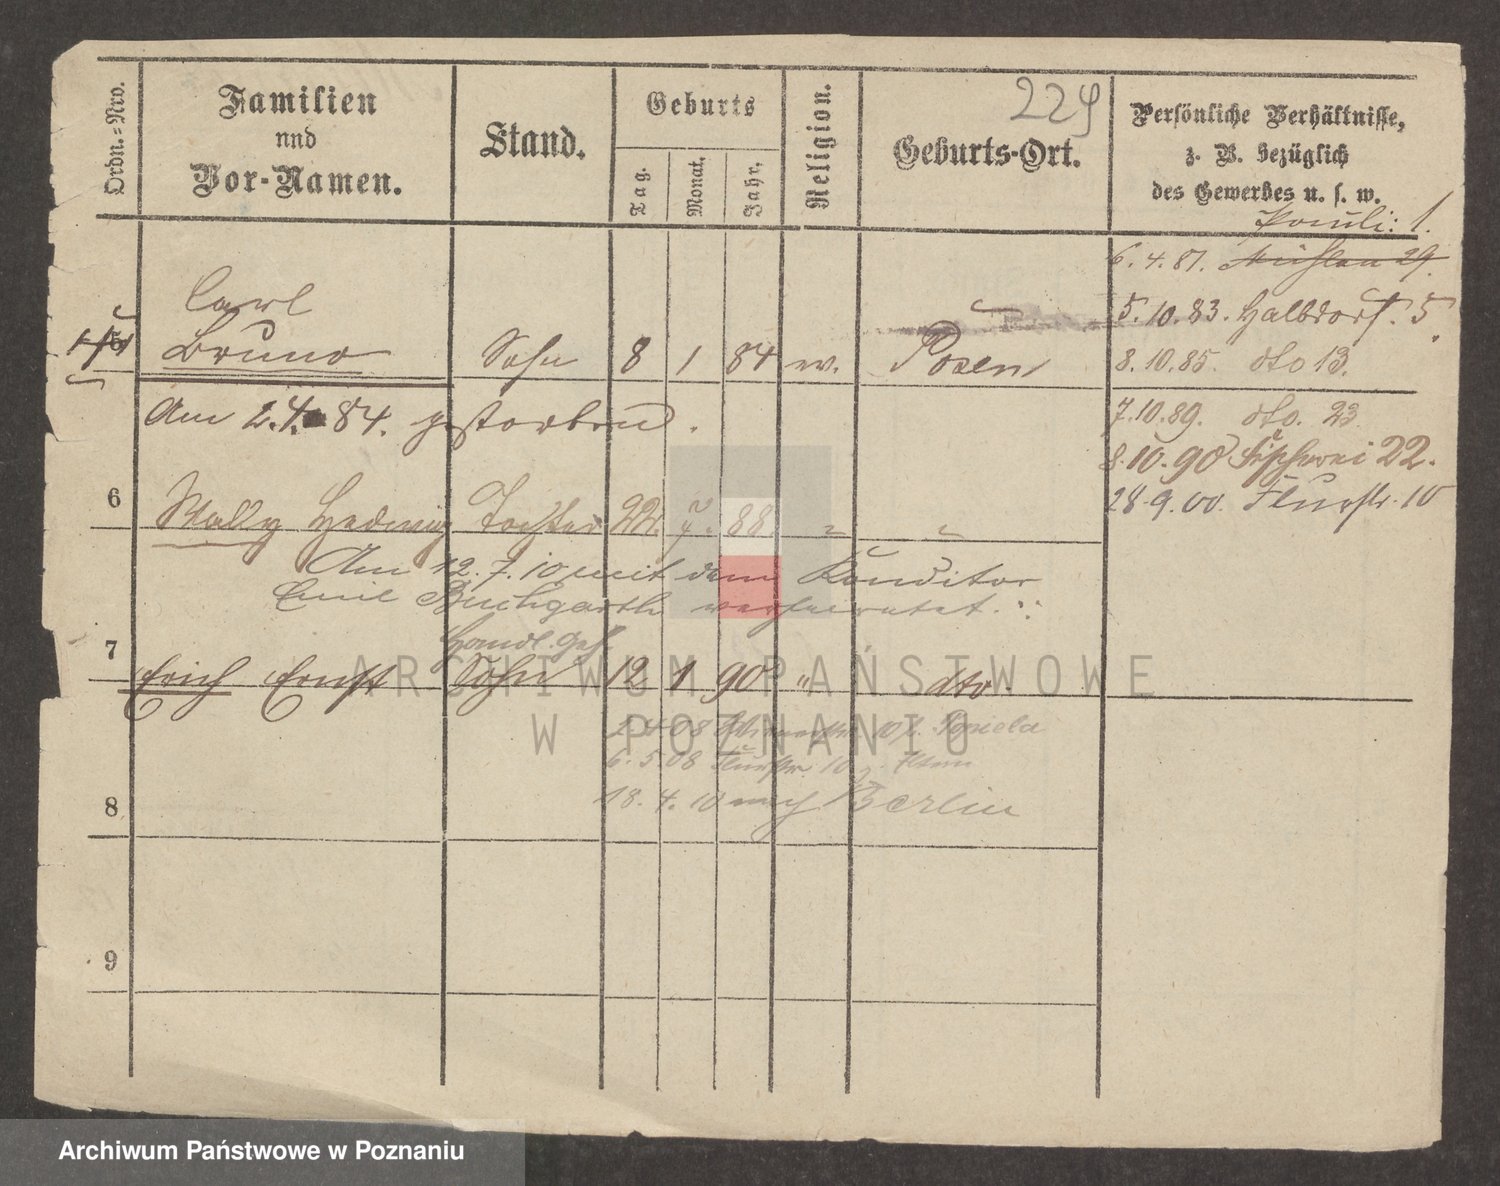 229
Ordn.=Nro.
Familien
und
Vor-Namen.
Stand.
Geburts
Tag.
Monat.
Jahr.
Religion.
Geburts-Ort.
Persönliche Verhältnisse,
z. B. bezüglich
des Gewerbes u. s. w.
Pauli: 1.
6. 4. 81. Mühlen 29.
5. 10. 83. Halbdorf. 5
Carl
5 Bruno Sohn 8 1 84 ev. Posen
8. 10. 85. dto 13.
Am 2. 4. 84. gestorben.
7. 10. 89. dto. 23
8. 10. 90 Fischerei 22.
28. 9. 00. Flurstr. 10
6 Wally Hedwig Tochter 22. 7. 88. " "
Am 12. 7. 10 mit dem Konditor
Emil Buchgarth verheiratet.
Handl. Geh.
7 Erich Ernst Sohn 12 1 90 " dto.
2. 4. 08
6. 5. 08 Flurstr. 10
18. 4. 10 nach Berlin
8
9
ARCHIWUM PAŃSTWOWE
W POZNANIU
Archiwum Państwowe w Poznaniu